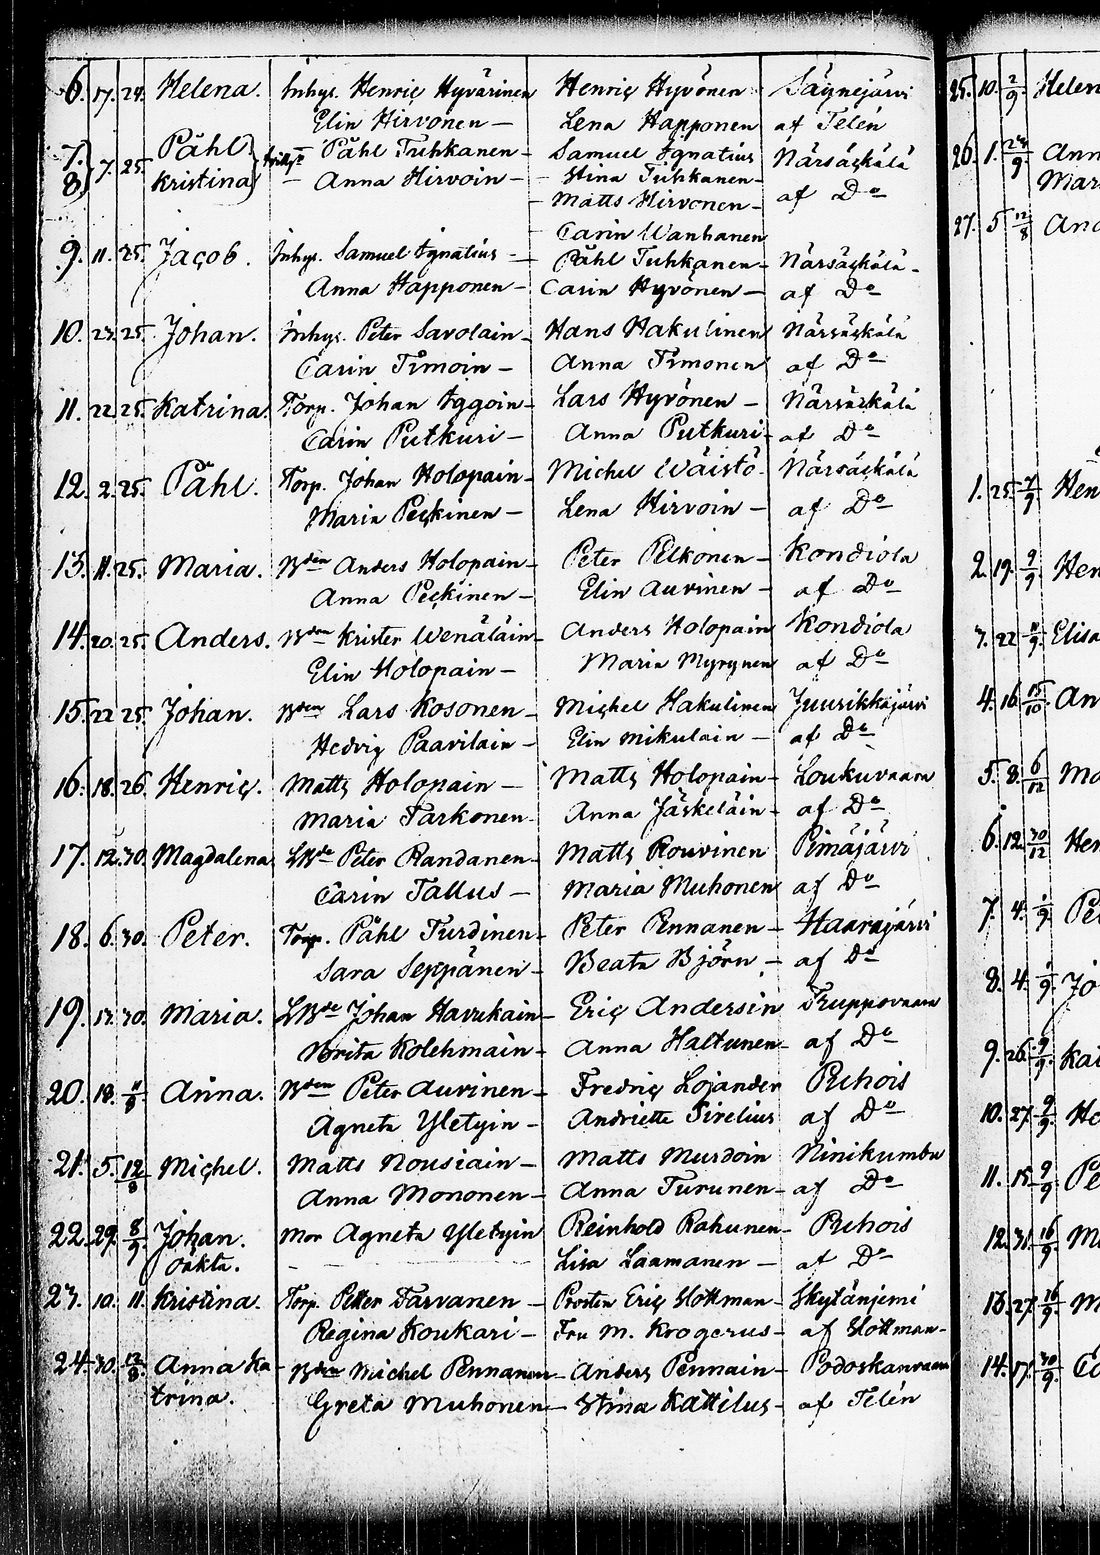 6. 17. 24. Helena. Inhys. Henriç Hyvärinen Henriç Hyvönen Säynejärvi
Elin Hirvonen — Lena Happonen af Telén
7. Påhl Påhl Tuhkanen — Samuel Ignatius Närsäkkälä
8. 7. 25. Kristina — Anna Hirvoin — Stina Tuhkanen — af Do
Matts Hirvonen —
Carin Wanhanen
9. 11. 25. Jacob. Inhys. Samuel Ignatius — Påhl Tuhkanen — Närsäkkälä
Anna Happonen — Carin Hyvönen — af Do
10. 23. 25. Johan. Inhys. Peter Savolain — Hans Hakulinen Närsäkkälä
Carin Timoin — Anna Timonen af Do
11. 22. 25. Katrina. Torp. Johan Iggoin — Lars Hyvönen — Närsäkkälä
Carin Putkuri — Anna Putkuri — af Do
12. 2. 25. Påhl. Torp. Johan Holopain — Michel Wäistö Närsäkkälä
Maria Peckinen — Lena Hirvoin — af Do
13. 11. 25. Maria. Bden Anders Holopain — Peter Pelkonen — Kondiola
Anna Peckinen — Elin Aurinen — af Do
14. 20. 25. Anders. Bden Krister Wenäläin — Anders Holopain Kondiola
Elin Holopain — Maria Myrynen af Do
15. 22 25. Johan. Bden Lars Kosonen — Michel Hakulinen Juurikkajärvi
Hedvig Paavilain — Elin Mikulain — af Do
16. 18. 26. Henriç. Matts Holopain — Matts Holopain — Loukuvaara
Maria Tarkonen — Anna Jäskeläin — af Do
17. 12. 30. Magdalena LBde Peter Randanen — Matts Rouvinen Pimäjärvi
Carin Tallus — Maria Muhonen af Do
18. 6. 30. Peter. Torp. Påhl Turdinen — Peter Pennanen — Haarajärvi
Sara Seppänen — Beata Björn — af Do
19. 17. 30. Maria. LBde Johan Havukain — Eric Andersin Truppovaara
Brita Kolehmain — Anna Haltunen — af Do
20. 18. 11/8. Anna. Bden Peter Aurinen — Fredric Lojander Puhois
Agneta Yletyin — Andriette Sirelius af Do
21. 5. 12/8 Michel. Matts Nousiain — Matts Murdoin Ninikumbu
Anna Mononen — Anna Turunen — af Do
22. 29. 8/9. Johan. Mor Agneta Yletyin Reinhold Rahunen — Puhois
oäkta. Lisa Laamanen — af Do
23. 10. 11. Kristina. Torp. Petter Tarvanen — Prosten Eric Hottman — Skytänjemi
Regina Koukari — Fru M. Krogerus — af Hottman —
24. 30. 12/8. Anna Ka- Bden Michel Pennanen — Anders Pennain — Podoskanvaara
trina. Greta Muhonen — Stina Kattilus — af Telén
25. 10. 2/9 Helen
26. 1. 24/9 Ann
Mar
27. 5 12/8 And
1. 25. 7/9 Hen
2. 19. 9/9. Hen
7. 22 11/9. Elisa
4. 16. 15/10. An
5. 8. 6/12 Ma
6. 12. 30/12 Hen
7. 4. 1/9 Pe
8. 4. 1/9. Jo
9. 26. 9/9. Kai
10. 27. 9/9.
11. 15. 9/9 Pe
12. 31. 16/9. M
13. 27. 16/9. M
14. 17. 30/9.